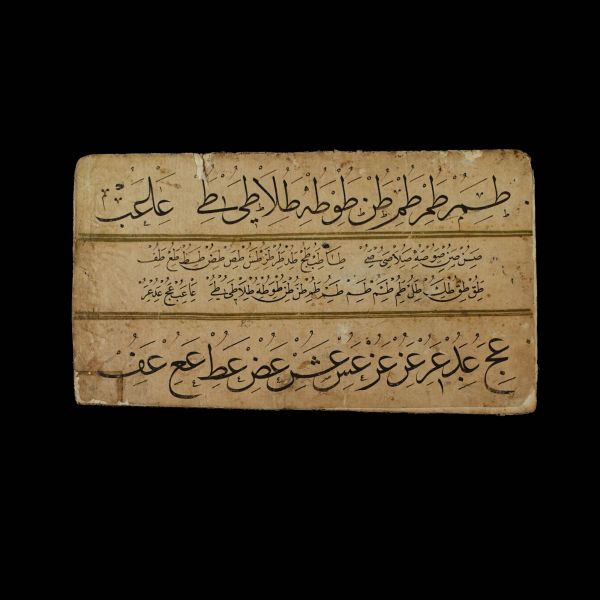 طم طمر طمر طن طو طه طلا طى طے عا عب
صن صو صه صلا صى صے طا طب طج طد طر طس طص طط طع طف
طق طك طل طم طم طم طن طو طه طلا طى طے عا عب عج عد عر
عج عد عر عر عر عس عص عط عع عف